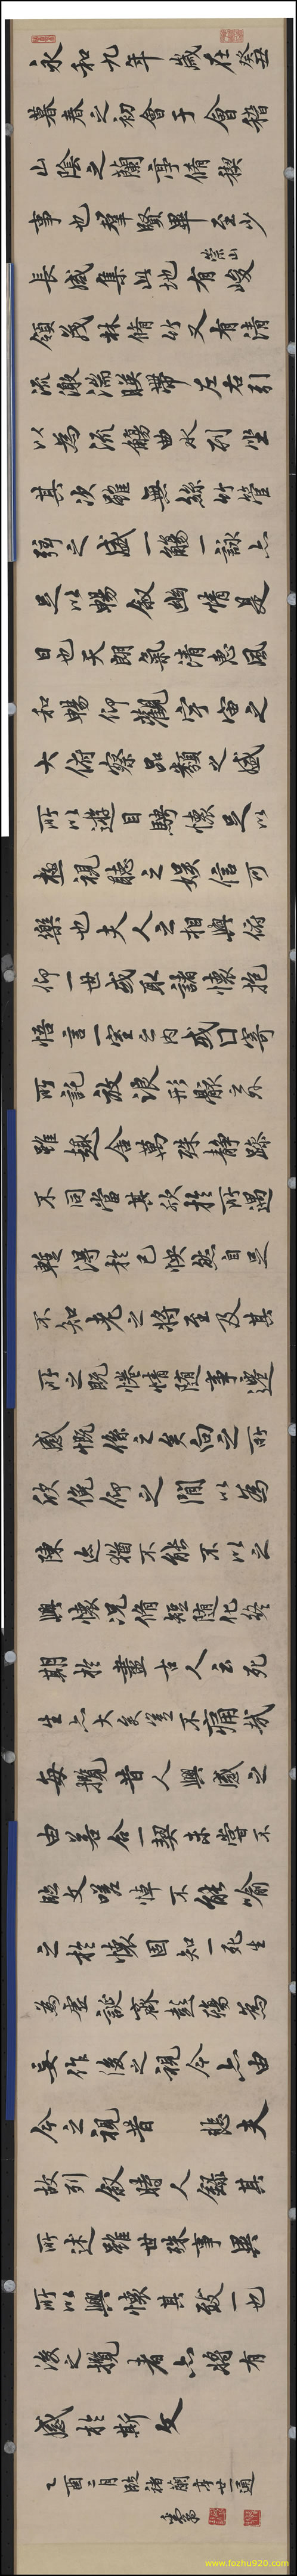 永和九年歲在癸丑
暮春之初會于會稽
山陰之蘭亭脩稧
事也羣賢畢至少
長咸集此地有崇山峻
領茂林脩竹又有清
流激湍暎帶左右引
以為流觴曲水列坐
其次雖無絲竹管
弦之盛一觴一詠亦
足以暢敘幽情是
日也天朗氣清惠風
和暢仰觀宇宙之
大俯察品類之盛
所以遊目騁懷足以
極視聽之娛信可
樂也夫人之相與俯
仰一世或取諸懷抱
悟言一室之內或因寄
所託放浪形骸之外
雖趣舍萬殊靜躁
不同當其欣於所遇
暫得於己怏然自足
不知老之將至及其
所之既惓情隨事遷
感慨係之矣向之所
欣俛仰之閒以為
陳迹猶不能不以之
興懷況脩短隨化終
期於盡古人云死
生亦大矣豈不痛哉
每攬昔人興感之
由若合一契未嘗不
臨文嗟悼不能喻
之於懷固知一死生
為虛誕齊彭殤為
妄作後之視今亦由
今之視昔 悲夫
故列敘時人錄其
所述雖世殊事異
所以興懷其致一也
後之攬者亦將有
感於斯文
乙酉二月臨褚蘭亭廿一通
www.fozhu920.com